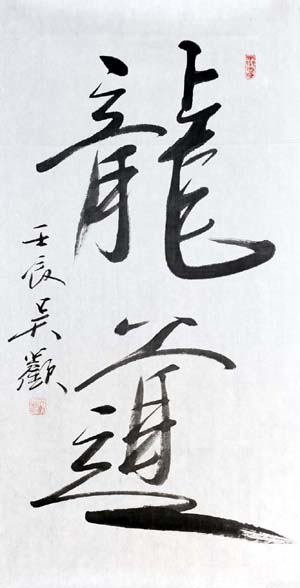 龍道
壬辰吴歡